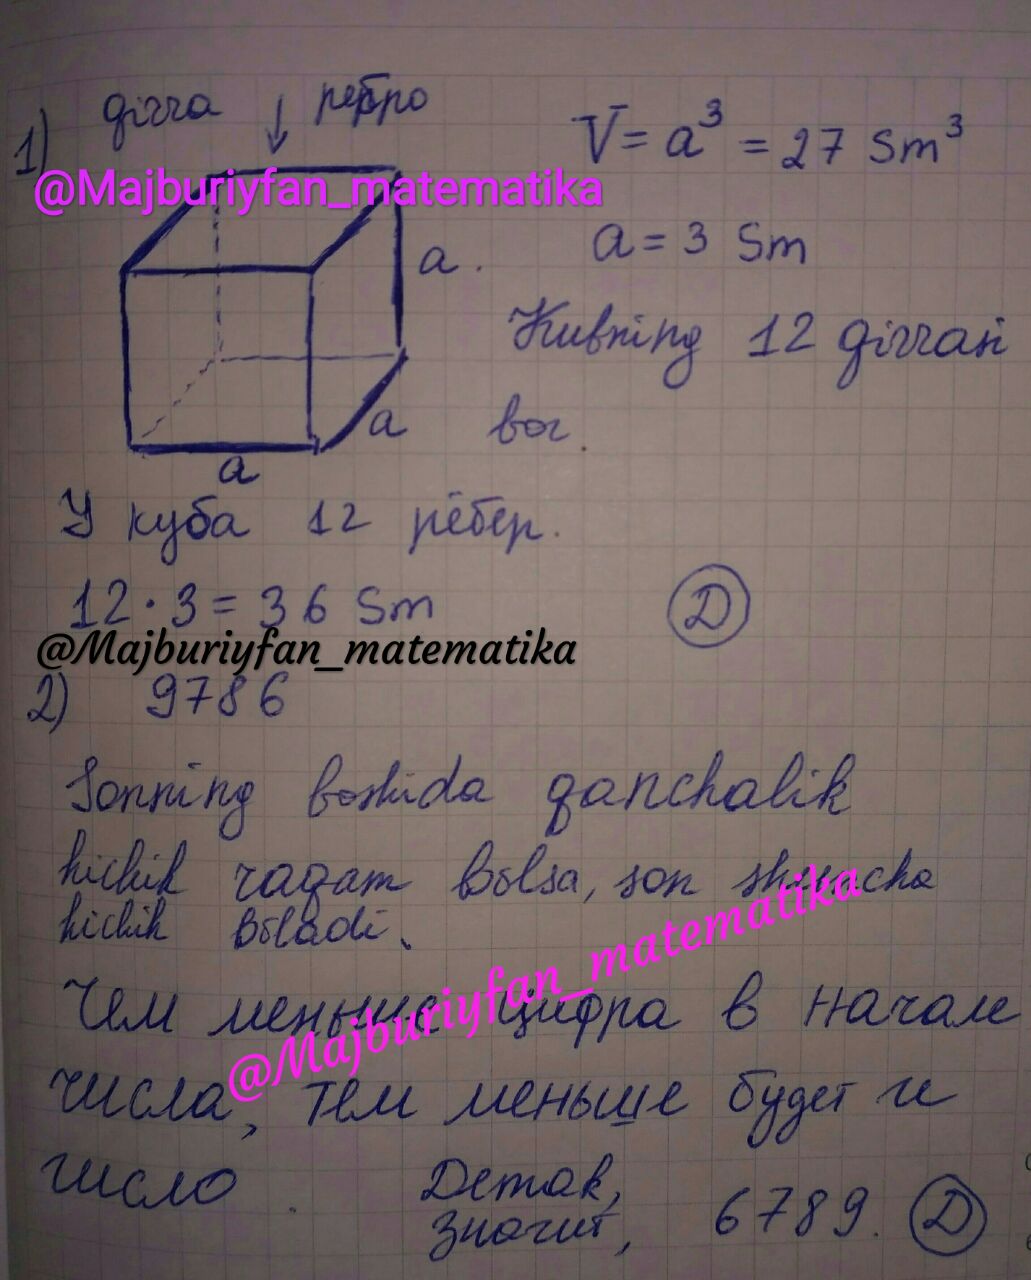 1) qirra ↓ ребро
V = a³ = 27 sm³
@Majburiyfan_matematika
a = 3 sm
a.
Kubning 12 qirrasi
bor.
a
a
У куба 12 рёбер.
12 · 3 = 36 sm
D
@Majburiyfan_matematika
2) 9786
Sonning boshida qanchalik
kichik raqam bo'lsa, son shuncha
kichik bo'ladi.
@Majburiyfan_matematika
Чем меньше цифра в начале
числа, тем меньше будет и
число.
Demak,
значит, 6789. D